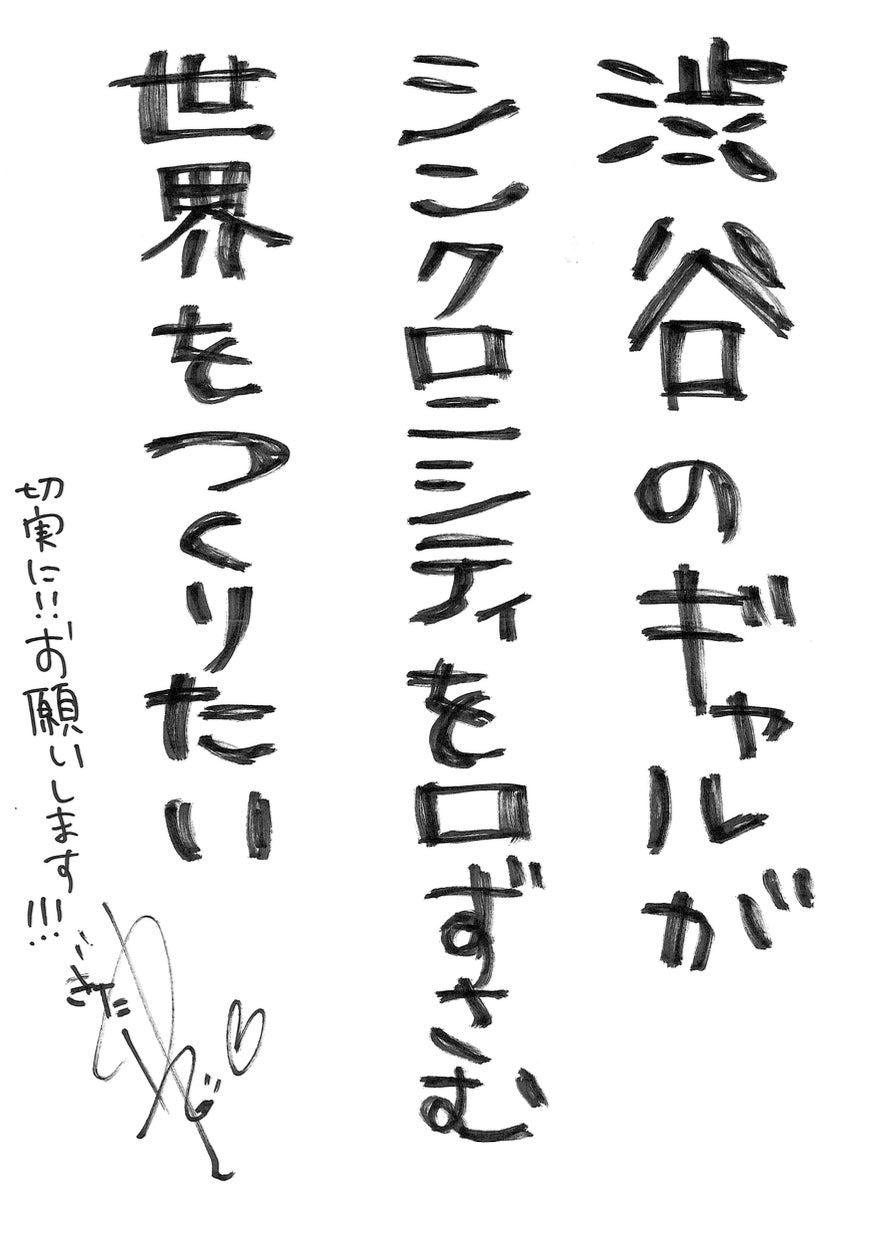 渋谷のギャルが
シンクロニシティを口ずさむ
世界をつくりたい
切実に!!お願いします!!!